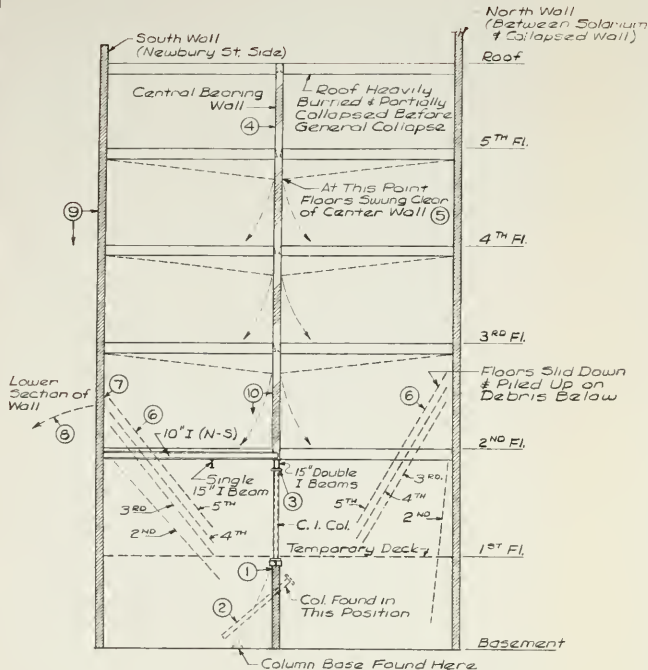 North Wall
(Between Solarium
& Collapsed Wall)
South Wall
(Newbury St. Side)
Roof
Central Bearing
Wall
④
Roof Heavily
Burried & Partially
Collapsed Before
General Collapse
5TH Fl.
At This Point
Floors Swung Clear
of Center Wall ⑤
⑨
4TH Fl.
3RD Fl.
Lower
Section of
Wall
⑦
⑥
⑧
10" I (N-S)
⑩
⑥
Floors Slid Down
& Piled Up on
Debris Below
2ND Fl.
Single
15" I Beam
15" Double
I Beams
③
3RD
5TH
2ND
4TH
C. I. Col.
5TH
4TH
3RD
2ND
Temporary Deck
1ST Fl.
①
②
Col. Found in
This Position
Basement
Column Base Found Here